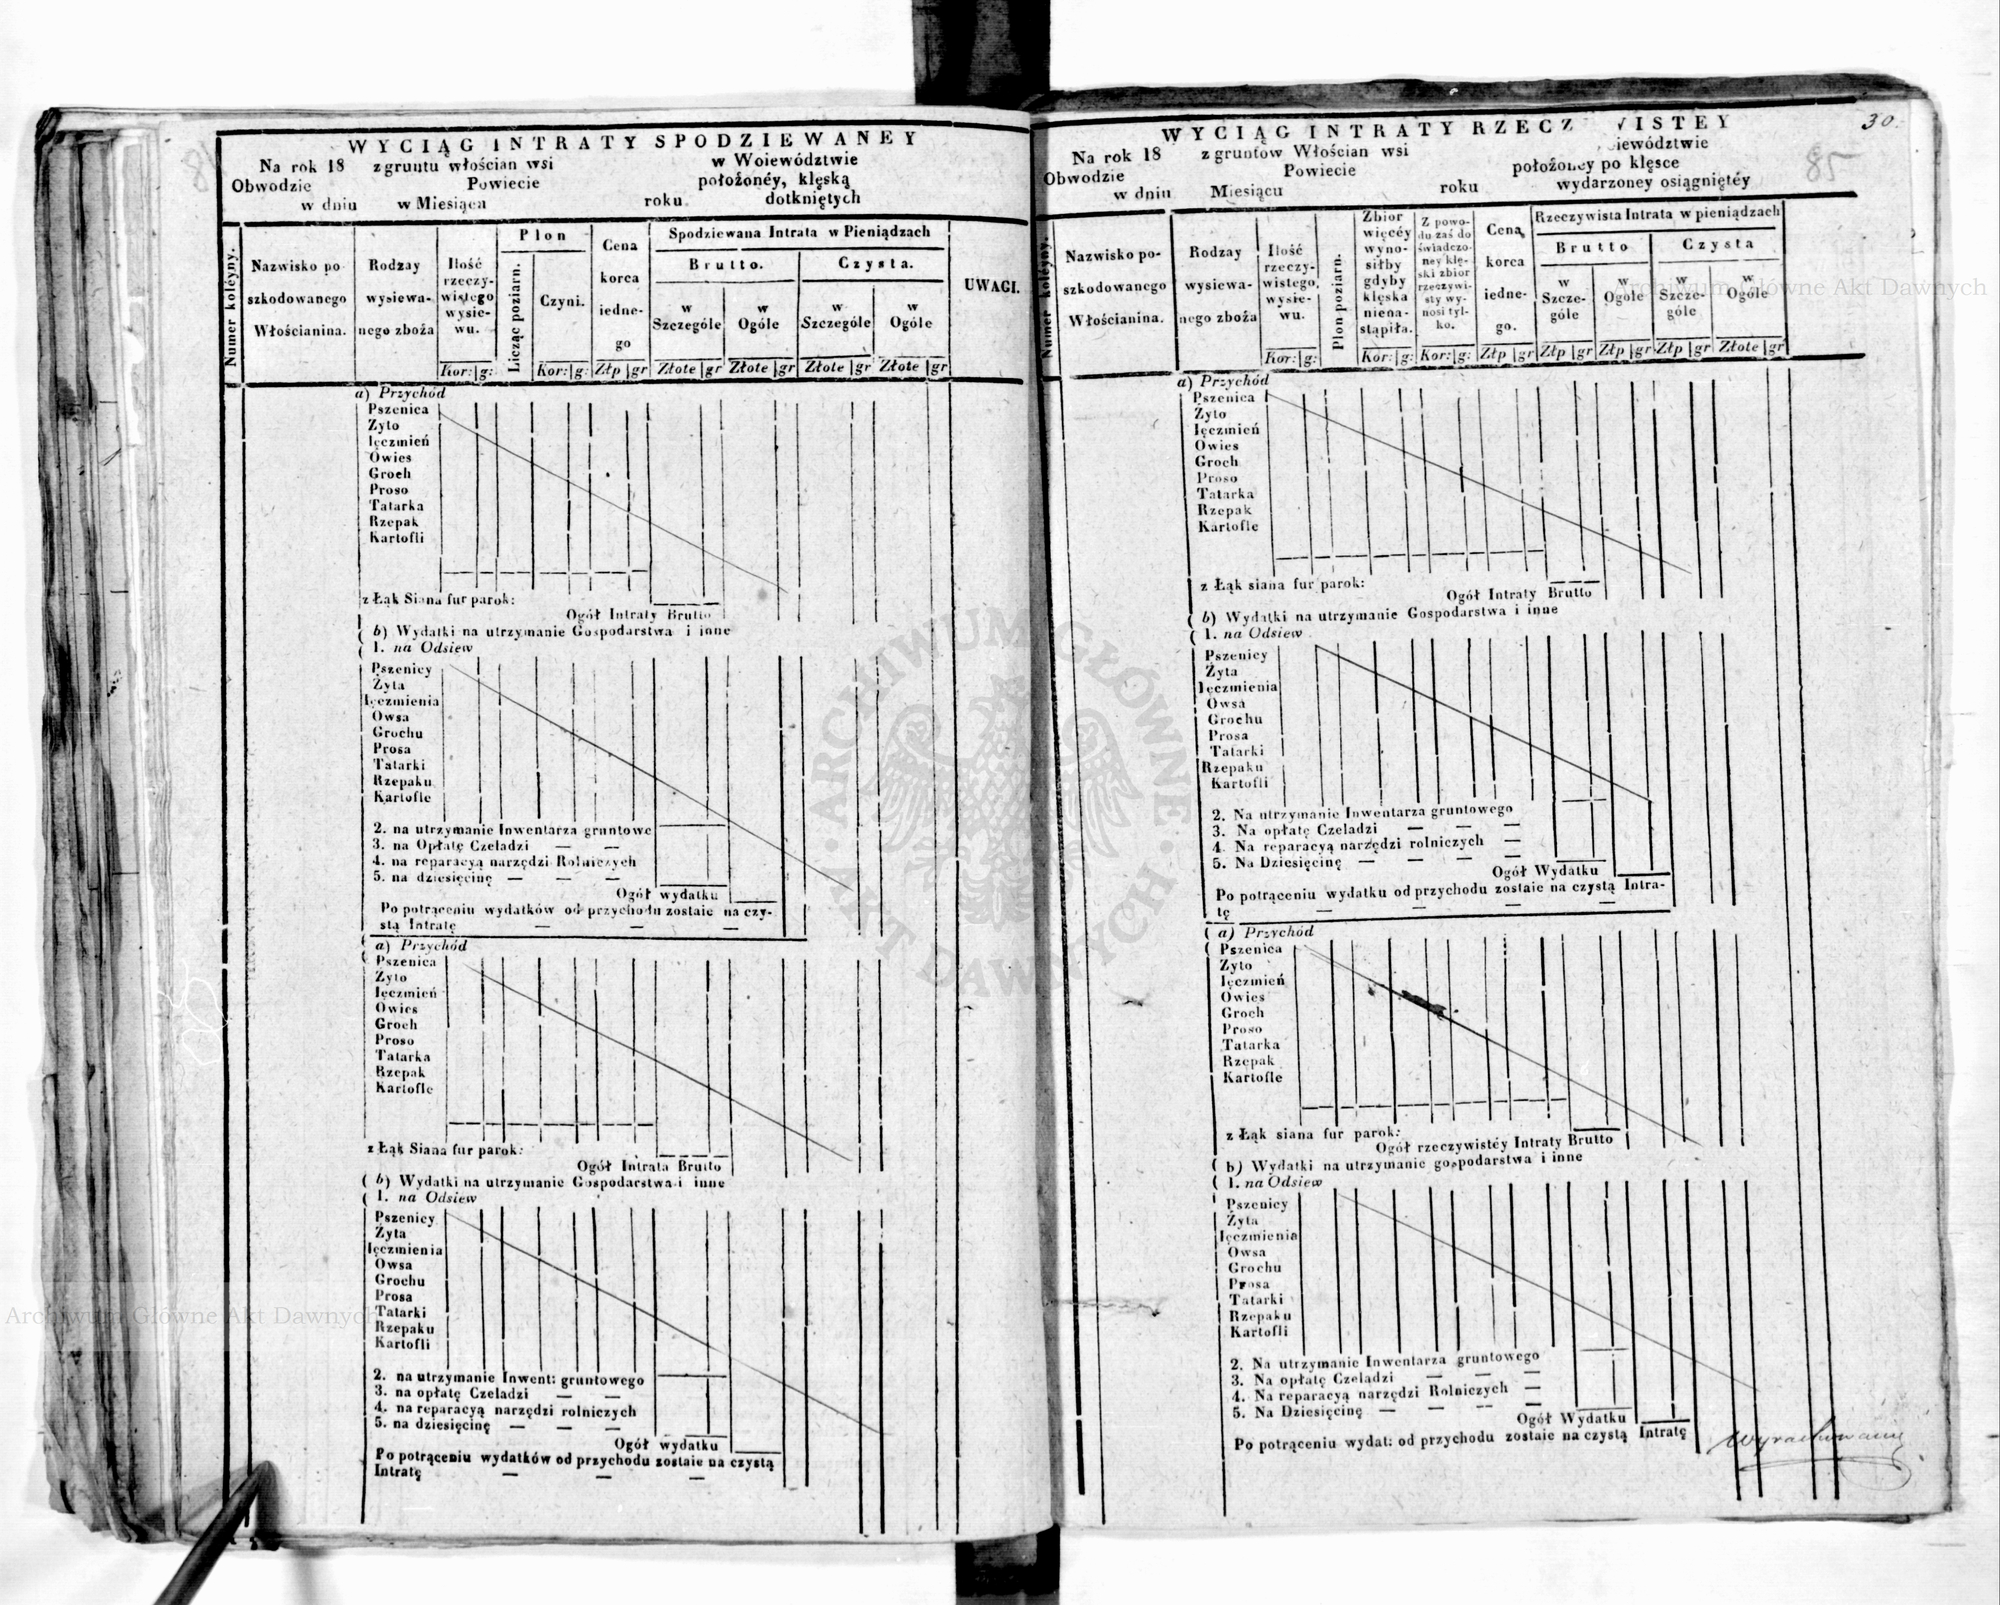 WYCIĄG INTRATY SPODZIEWANEY
Na rok 18 z gruntu włościan wsi w Woiewództwie
Obwodzie Powiecie położonéy, klęską
w dniu w Miesiąca roku dotkniętych
Numer koléyny.
Nazwisko po
szkodowanego
Włościanina.
Rodzay
wysiewa-
nego zboża
Ilość
rzeczy-
wistego
wysie-
wu.
Kor: g:
Plon
Licząc poziarn.
Czyni.
Kor: g:
Cena
korca
iedne-
go
Złp gr
Spodziewana Intrata w Pieniądzach
Brutto. Czysta.
w Szczególe
w Ogóle
w Szczególe
w Ogóle
Złote gr Złote gr Złote gr Złote gr
UWAGI.
a) Przychód
Pszenica
Żyto
Ięczmień
Owies
Groch
Proso
Tatarka
Rzepak
Kartofli
z Łąk Siana fur parok:
Ogół Intraty Brutto
(b) Wydatki na utrzymanie Gospodarstwa i inne
( 1. na Odsiew
Pszenicy
Żyta
Ięczmienia
Owsa
Grochu
Prosa
Tatarki
Rzepaku
Kartofle
2. na utrzymanie Inwentarza gruntowe
3. na Opłatę Czeladzi — —
4. na reparacyą narzędzi Rolniczych
5. na dziesięcinę — — —
Ogół wydatku
Po potrąceniu wydatków od przychodu zostaie na czy-
stą Intratę — — —
( a) Przychód
Pszenica
Żyto
Ięczmień
Owies
Groch
Proso
Tatarka
Rzepak
Kartofle
z Łąk Siana fur parok:
Ogół Intrata Brutto
( b) Wydatki na utrzymanie Gospodarstwa i inne
( 1. na Odsiew
Pszenicy
Żyta
Ięczmienia
Owsa
Grochu
Prosa
Tatarki
Rzepaku
Kartofli
2. na utrzymanie Inwent: gruntowego
3. na opłatę Czeladzi — —
4. na reparacyą narzędzi rolniczych
5. na dziesięcinę — — —
Ogół wydatku
Po potrąceniu wydatków od przychodu zostaie na czystą
Intratę — — —
30.
85
WYCIĄG INTRATY RZECZ VISTEY
Na rok 18 z gruntów Włościan wsi iewództwie
Obwodzie Powiecie położoney po klęsce
w dniu Miesiącu roku wydarzoney osiągniętéy
Numer koléyny.
Nazwisko po-
szkodowanego
Włościanina.
Rodzay
wysiewa-
nego zboża
Ilość
rzeczy-
wistego,
wysie-
wu.
Kor: g:
Plon poziarn.
Zbior
więcéy
wyno-
siłby
gdyby
klęska
niena-
stąpiła.
Kor: g:
Z powo-
du zaś do
świadczo-
ney klę-
ski zbior
rzeczywi-
sty wy-
nosi tyl-
ko.
Kor: g:
Cena
korca
iedne-
go.
Złp gr
Rzeczywista Intrata w pieniądzach
Brutto Czysta
w Szcze-
góle
w Ogóle
w Szcze-
góle
w Ogóle
Złp gr Złp gr Złp gr Złote gr
a) Przychód
Pszenica
Żyto
Ięczmień
Owies
Groch
Proso
Tatarka
Rzepak
Kartofle
z Łąk siana fur parok:
Ogół Intraty Brutto
( b) Wydatki na utrzymanie Gospodarstwa i inne
( 1. na Odsiew
Pszenicy
Żyta
Ięczmienia
Owsa
Grochu
Prosa
Tatarki
Rzepaku
Kartofli
2. Na utrzymanie Inwentarza gruntowego
3. Na opłatę Czeladzi — — —
4. Na reparacyą narzędzi rolniczych —
5. Na Dziesięcinę — — — —
Ogół Wydatku
Po potrąceniu wydatku od przychodu zostaie na czystą Intra-
tę — — — —
( a) Przychód
( Pszenica
Żyto
Ięczmień
Owies
Groch
Proso
Tatarka
Rzepak
Kartofle
z Łąk siana fur parok:
Ogół rzeczywistéy Intraty Brutto
( b) Wydatki na utrzymanie gospodarstwa i inne
( 1. na Odsiew
Pszenicy
Żyta
Ięczmienia
Owsa
Grochu
Prosa
Tatarki
Rzepaku
Kartofli
2. Na utrzymanie Inwentarza gruntowego
3. Na opłatę Czeladzi — — —
4. Na reparacyą narzędzi Rolniczych —
5. Na Dziesięcinę — — — —
Ogół Wydatku
Po potrąceniu wydat: od przychodu zostaie na czystą Intratę
ARCHIWUM GŁÓWNE AKT DAWNYCH
Archiwum Główne Akt Dawnych
Archiwum Główne Akt Dawnych